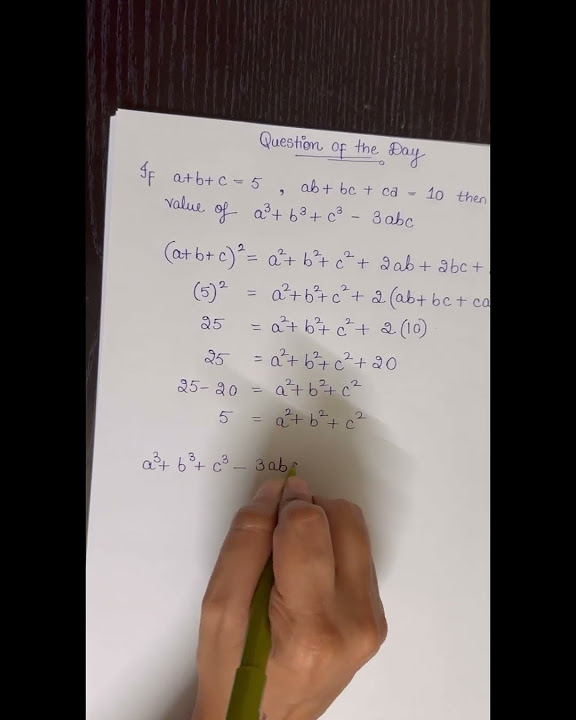 Question of the Day
If a+b+c = 5 , ab + bc + ca = 10 then
value of a³ + b³ + c³ - 3abc
(a+b+c)² = a² + b² + c² + 2ab + 2bc +
(5)² = a² + b² + c² + 2(ab + bc + ca
25 = a² + b² + c² + 2(10)
25 = a² + b² + c² + 20
25 - 20 = a² + b² + c²
5 = a² + b² + c²
a³ + b³ + c³ - 3ab